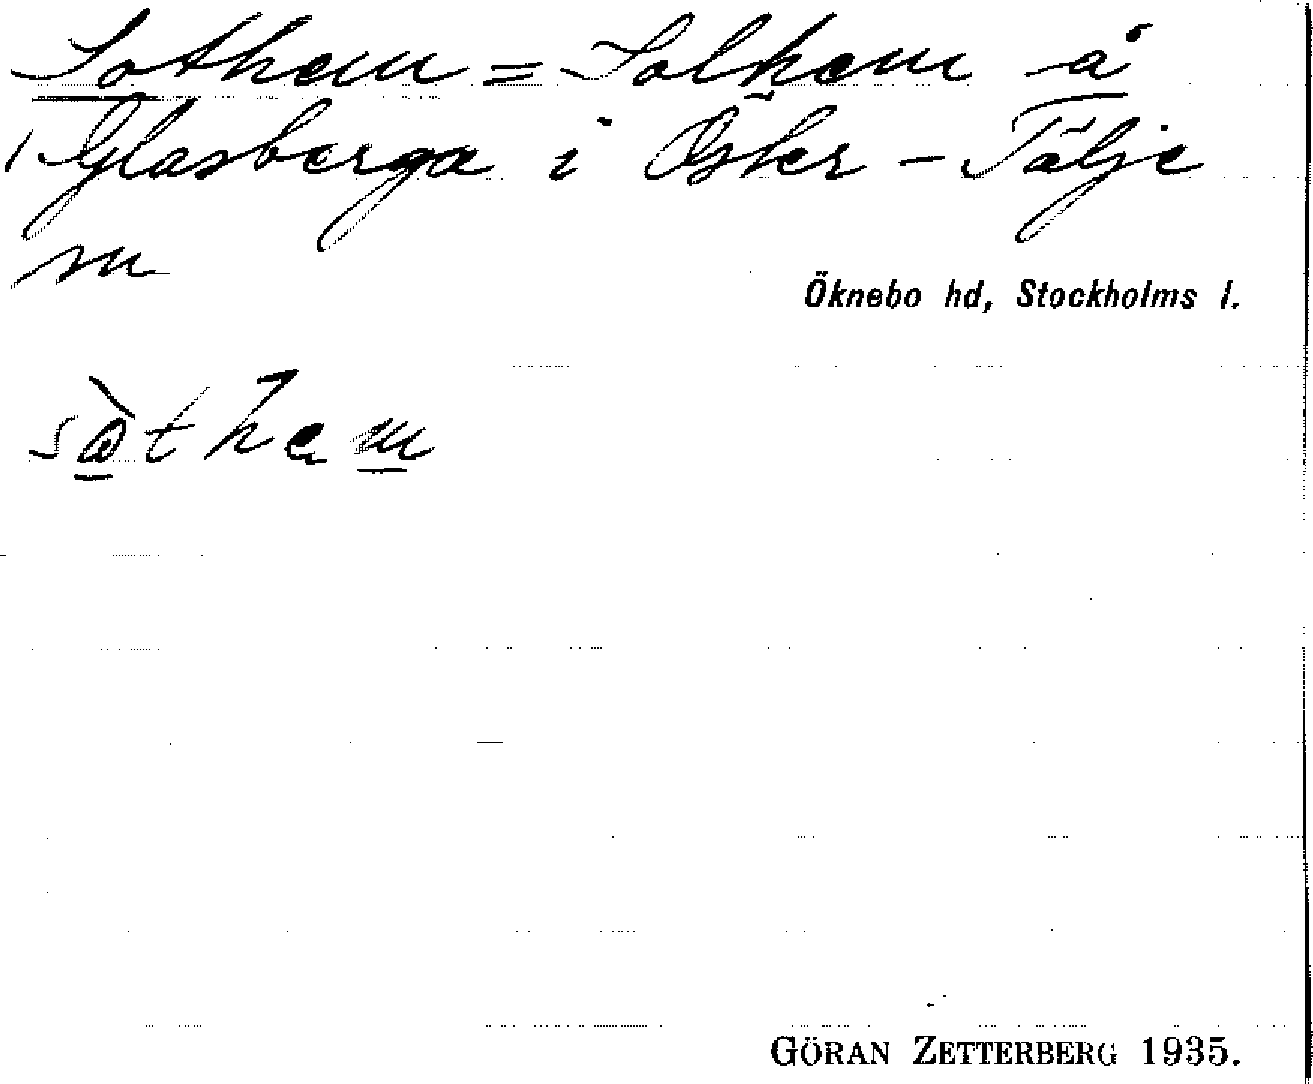 Sothem = Solhem å
Glasberga i Öster-Tälje
sn
Öknebo hd, Stockholms l.
sòthem
GÖRAN ZETTERBERG 1935.